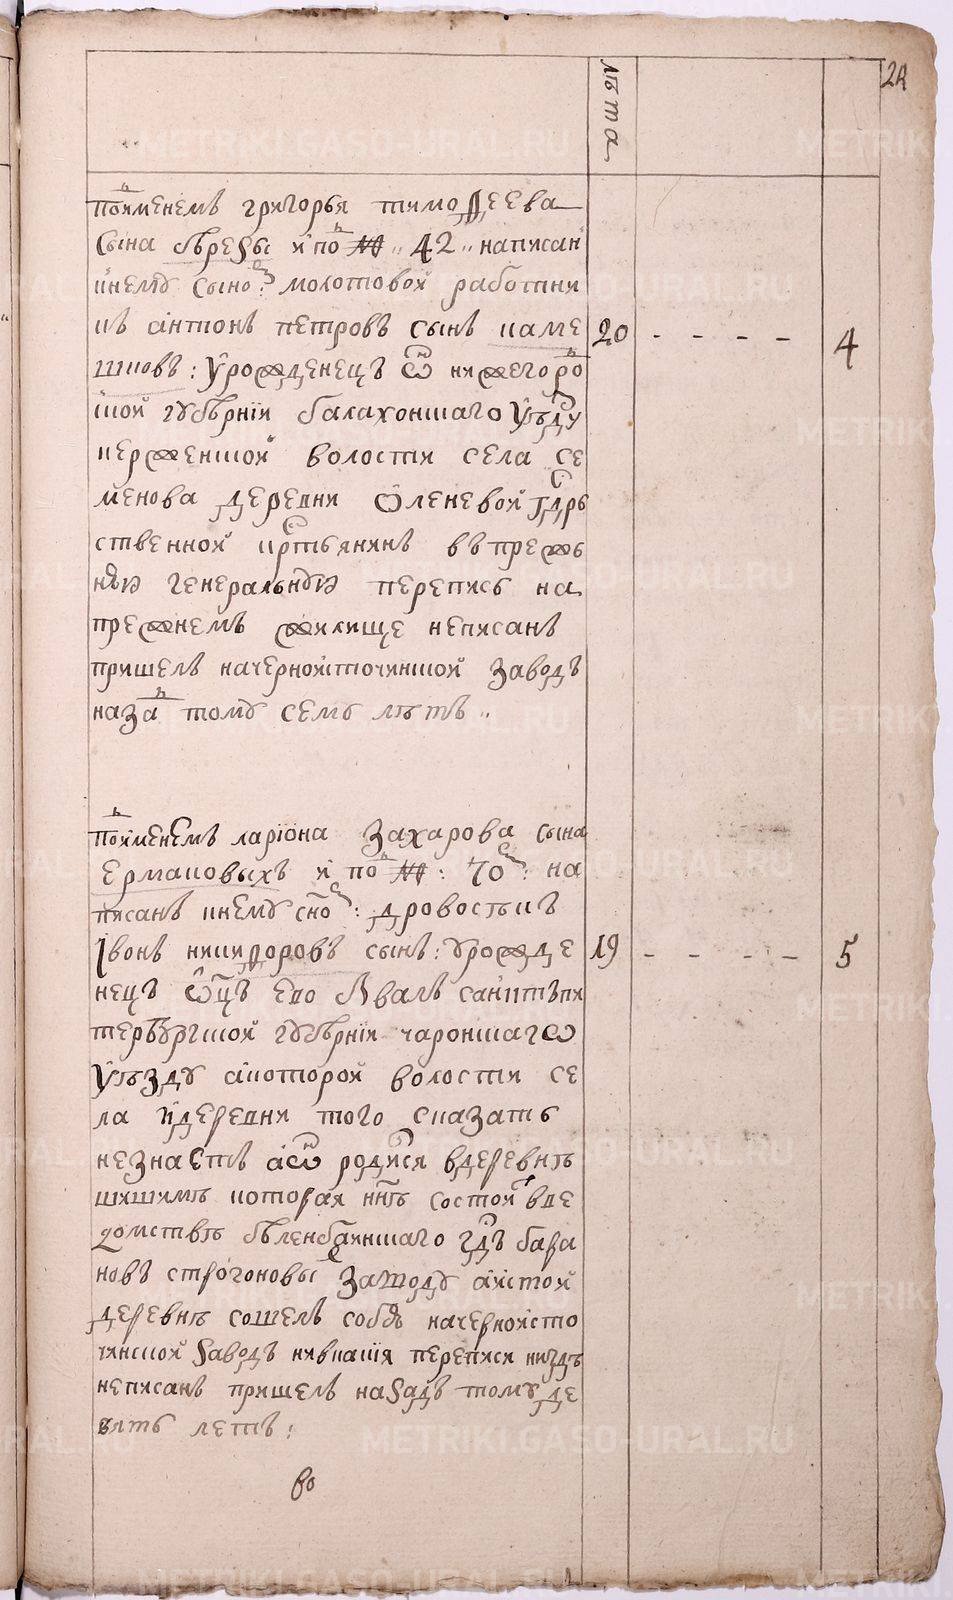 лѣта
24
подименемъ григорья тимоѳеева
сына бѣрезы и по № 42 написан
кнему сыно: молотовой работни
къ антонъ петровъ сынъ каме
шковъ: урожденецъ ѿ нижегоро
цкой губѣрнии балахонскаго уѣзду
керженской волости села се
менова деревни ѡленевой гдрь
ственной крстьянинъ в прежь
нюю генеральную перепись на
прежнемъ жилище неписанъ
пришелъ начерноисточинской заводъ
назад тому семь лѣтъ
20 - - - - 4
подименемъ лариона захарова сына
ермаковыхъ и по №: 70: на
писанъ кнему сно: дровосѣкъ
Iвонъ никифоровъ сынъ: урожде
нецъ ѿцъ ево бывалъ санктъпи
тербургской губѣрнии чаронскагѡ
уѣзду а которой волости се
ла и деревни того сказать
незнаетъ а ѡн родился вдеревнѣ
шишимѣ которая ннѣ состоит вве
домствѣ бѣленбаинскаго гдъ бара
новъ строгоновы заводу а ис той
деревнѣ сошелъ собою начерноисто
чинской заводъ и в нашия переписи нигдъ
неписанъ пришелъ назадъ тому де
вять летъ:
19 - - - - 5
во
METRIKI.GASO-URAL.RU